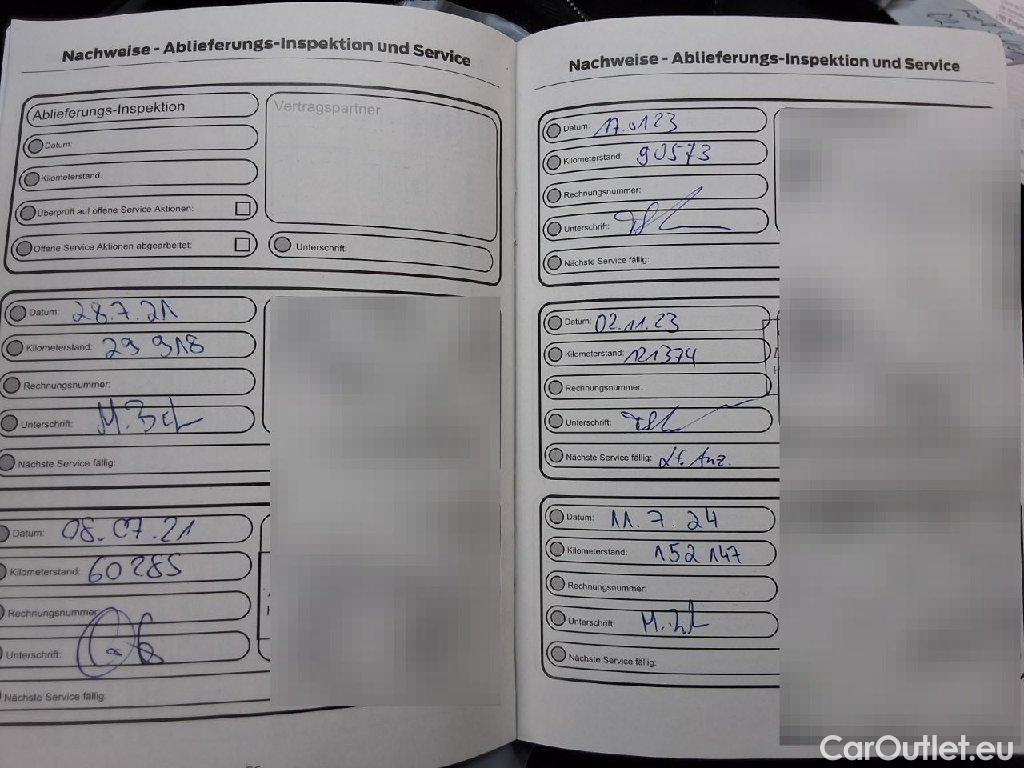 Nachweise - Ablieferungs-Inspektion und Service
Ablieferungs-Inspektion
Vertragspartner
Datum:
Kilometerstand:
Überprüft auf offene Service Aktionen:
Offene Service Aktionen abgearbeitet:
Unterschrift:
Datum: 28.7.21
Kilometerstand: 29 918
Rechnungsnummer:
Unterschrift:
Nächste Service fällig:
Datum: 08.07.21
Kilometerstand: 60285
Rechnungsnummer:
Unterschrift:
Nächste Service fällig:
Nachweise - Ablieferungs-Inspektion und Service
Datum: 17.01.23
Kilometerstand: 90573
Rechnungsnummer:
Unterschrift:
Nächste Service fällig:
Datum: 02.11.23
Kilometerstand: 121374
Rechnungsnummer:
Unterschrift:
Nächste Service fällig: Lt. Anz.
Datum: 11.7.24
Kilometerstand: 152 147
Rechnungsnummer:
Unterschrift:
Nächste Service fällig:
CarOutlet.eu